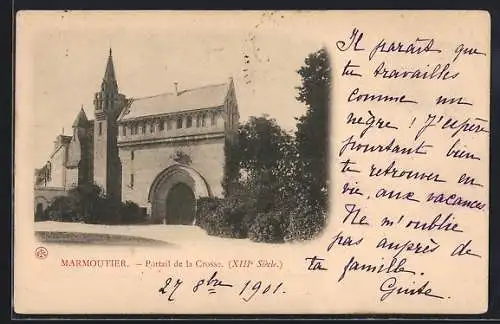 Il paraît que
tu travailles
comme un
nègre ! J'espère
pourtant bien
te retrouver en
vie, aux vacances.
Ne m'oublie
pas auprès de
ta famille.
MARMOUTIER. — Portail de la Crosse. (XIIIe Siècle.)
27 8bre 1901.